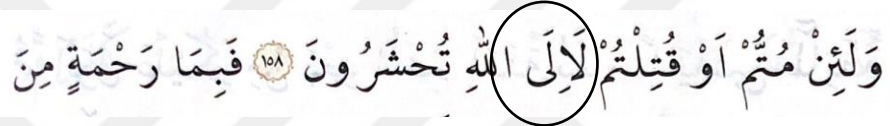 وَلَئِنْ مُتُّمْ اَوْ قُتِلْتُمْ لَاِلَى اللّٰهِ تُحْشَرُونَ ١٥٨ فَبِمَا رَحْمَةٍ مِنَ